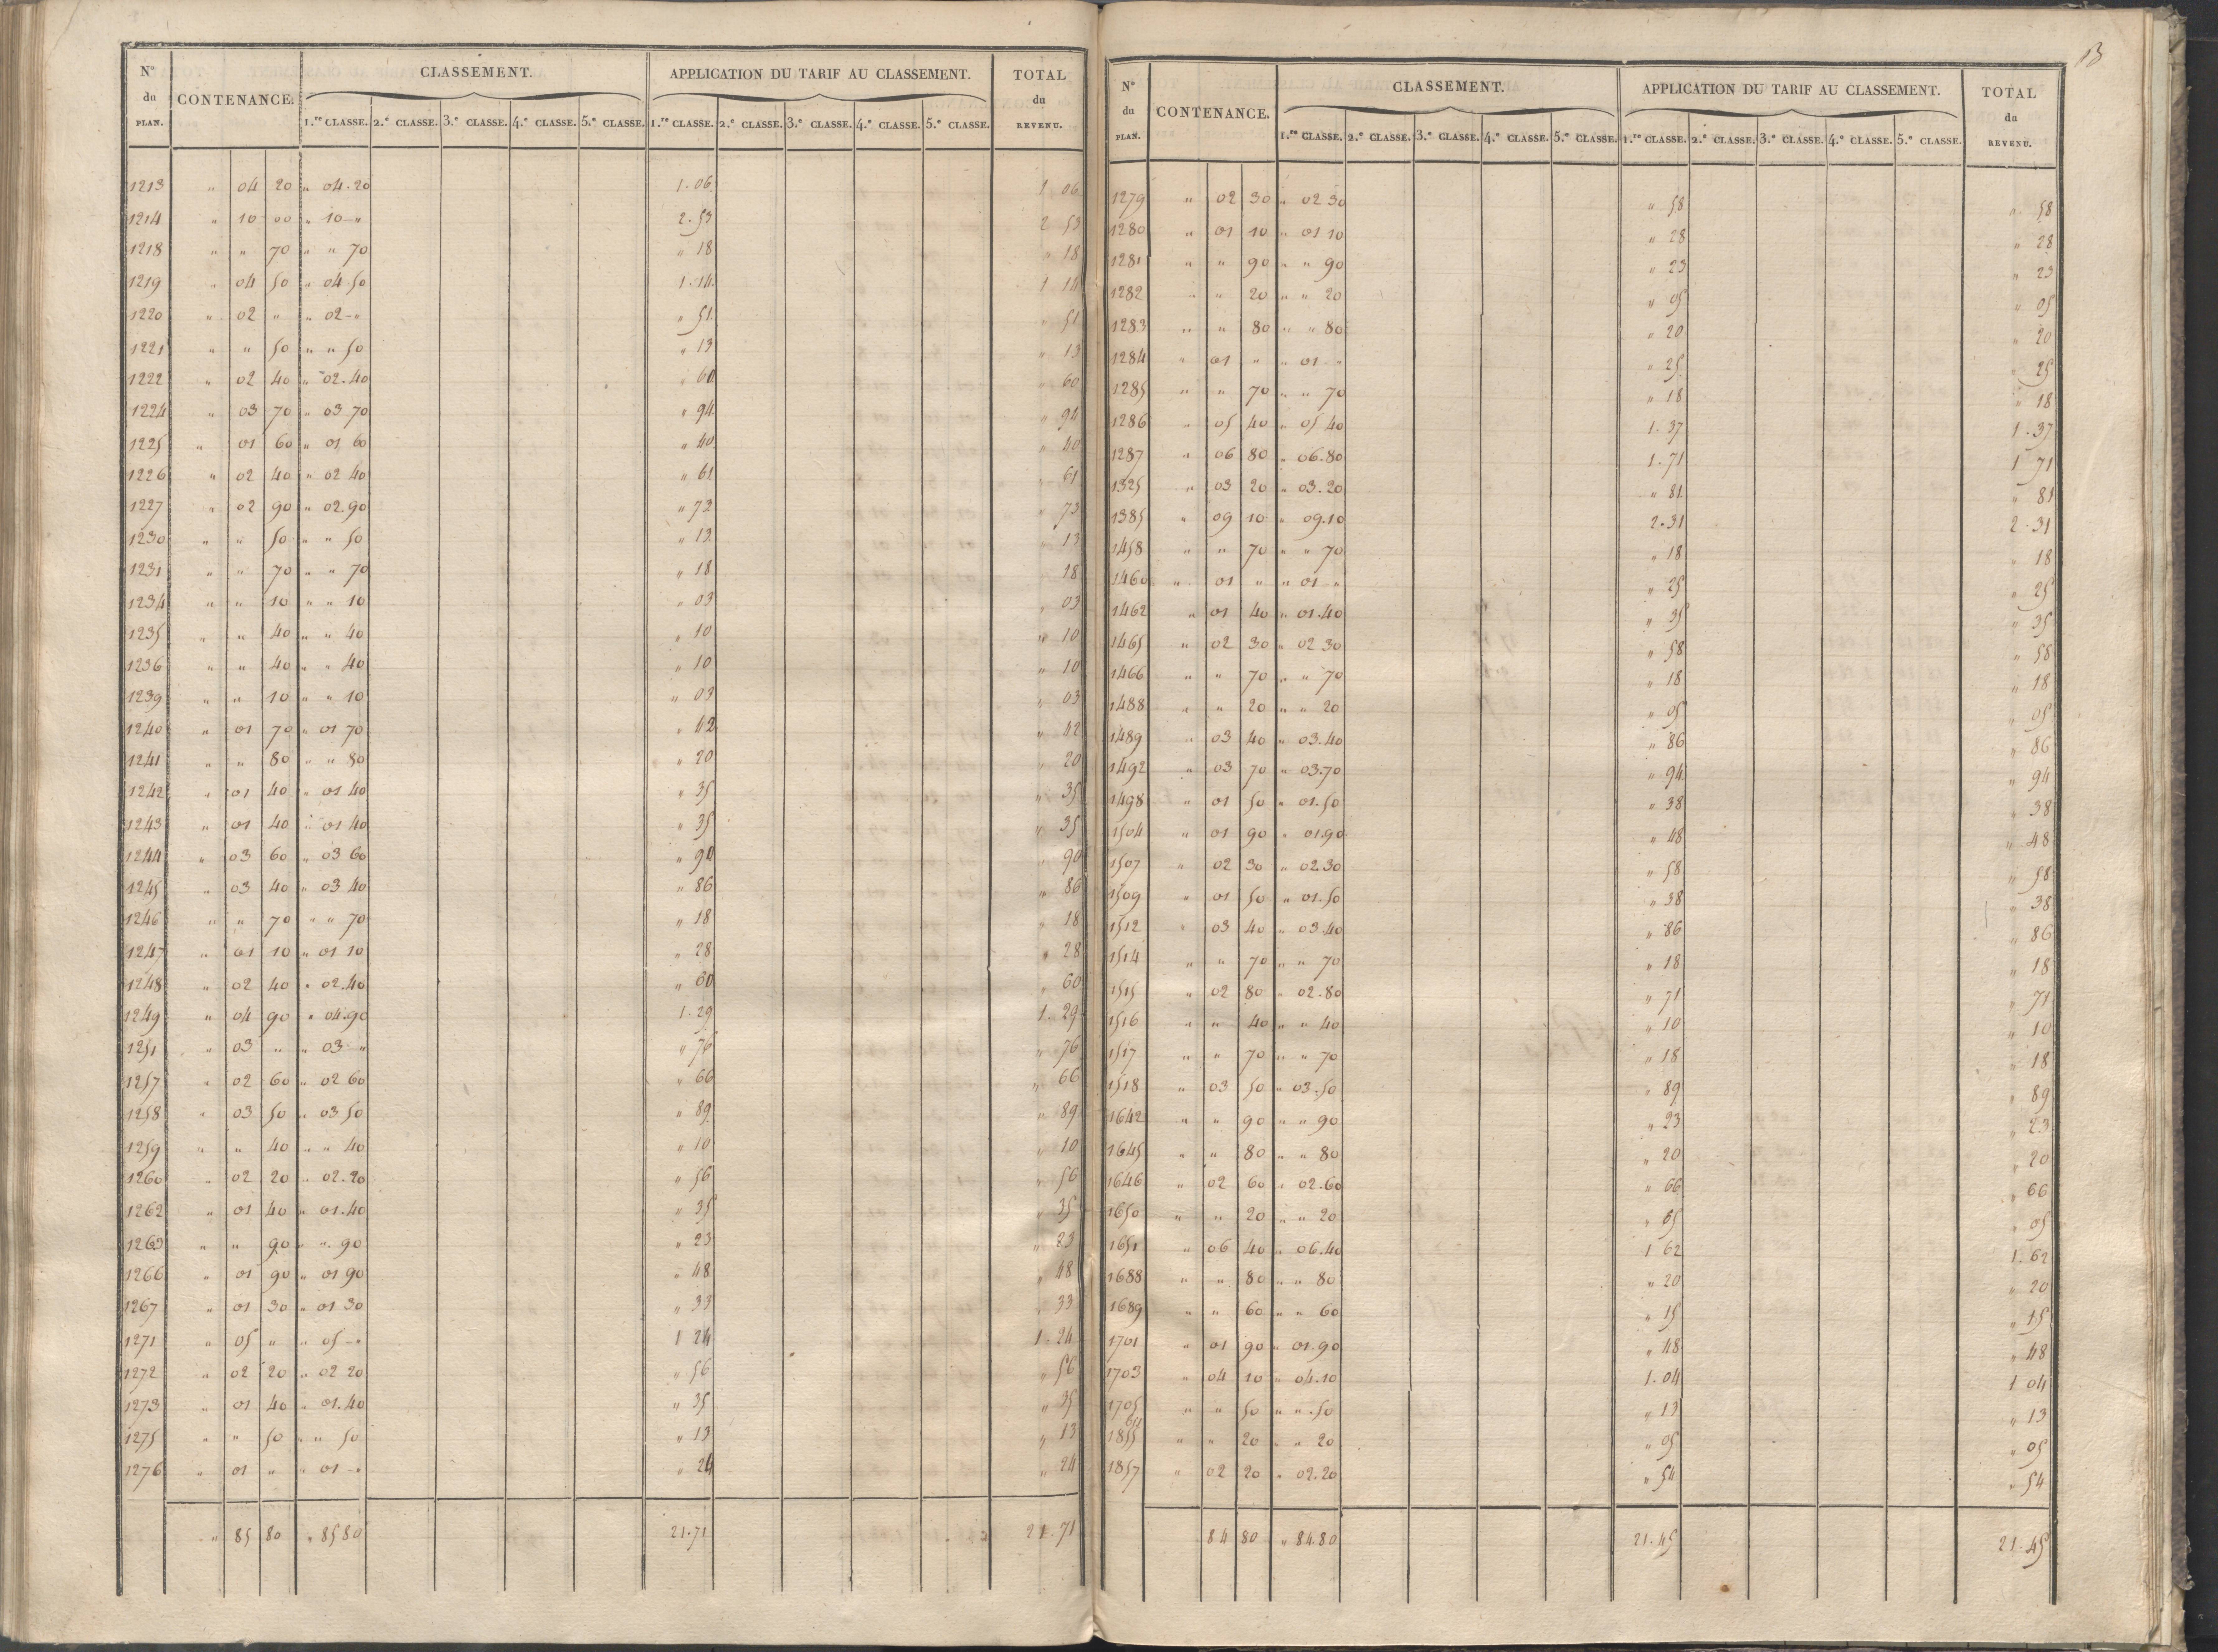 N° du PLAN. CONTENANCE. CLASSEMENT. APPLICATION DU TARIF AU CLASSEMENT. TOTAL du REVENU.
1.re CLASSE. 2.e CLASSE. 3.e CLASSE. 4.e CLASSE. 5.e CLASSE. 1.re CLASSE. 2.e CLASSE. 3.e CLASSE. 4.e CLASSE. 5.e CLASSE.
1213 " 04 20 " 04.20 1.06 1 06
1214 " 10 00 " 10-" 2.53 2 53
1218 " " 70 " " 70 " 18 " 18
1219 " 04 50 " 04 50 1.14 1 14
1220 " 02 " " 02-" " 51 " 51
1221 " " 50 " " 50 " 13 " 13
1222 " 02 40 " 02.40 " 60 " 60
1224 " 03 70 " 03 70 " 94 " 94
1225 " 01 60 " 01 60 " 40 " 40
1226 " 02 40 " 02 40 " 61 " 61
1227 " 02 90 " 02.90 " 73 " 73
1230 " " 50 " " 50 " 13 " 13
1231 " " 70 " " 70 " 18 " 18
1234 " " 10 " " 10 " 03 " 03
1235 " " 40 " " 40 " 10 " 10
1236 " " 40 " " 40 " 10 " 10
1239 " " 10 " " 10 " 03 " 03
1240 " 01 70 " 01 70 " 42 " 42
1241 " " 80 " " 80 " 20 " 20
1242 " 01 40 " 01 40 " 35 " 35
1243 " 01 40 " 01 40 " 35 " 35
1244 " 03 60 " 03 60 " 90 " 90
1245 " 03 40 " 03 40 " 86 " 86
1246 " " 70 " " 70 " 18 " 18
1247 " 01 10 " 01 10 " 28 " 28
1248 " 02 40 " 02.40 " 60 " 60
1249 " 04 90 " 04.90 1.29 1.29
1251 " 03 " " 03-" " 76 " 76
1257 " 02 60 " 02 60 " 66 " 66
1258 " 03 50 " 03 50 " 89 " 89
1259 " " 40 " " 40 " 10 " 10
1260 " 02 20 " 02.20 " 56 " 56
1262 " 01 40 " 01.40 " 35 " 35
1263 " " 90 " " 90 " 23 " 23
1266 " 01 90 " 01 90 " 48 " 48
1267 " 01 30 " 01 30 " 33 " 33
1271 " 05 " " 05-" 1 24 1.24
1272 " 02 20 " 02 20 " 56 " 56
1273 " 01 40 " 01.40 " 35 " 35
1275 " " 50 " " 50 " 13 " 13
1276 " 01 " " 01-" " 24 " 24
" 85 80 " 85 80 21.71 21.71
13
N° du PLAN. CONTENANCE. CLASSEMENT. APPLICATION DU TARIF AU CLASSEMENT. TOTAL du REVENU.
1.re CLASSE. 2.e CLASSE. 3.e CLASSE. 4.e CLASSE. 5.e CLASSE. 1.re CLASSE. 2.e CLASSE. 3.e CLASSE. 4.e CLASSE. 5.e CLASSE.
1279 " 02 30 " 02 30 " 58 " 58
1280 " 01 10 " 01 10 " 28 " 28
1281 " " 90 " " 90 " 23 " 23
1282 " " 20 " " 20 " 05 " 05
1283 " " 80 " " 80 " 20 " 20
1284 " 01 " " 01-" " 25 " 25
1285 " " 70 " " 70 " 18 " 18
1286 " 05 40 " 05 40 1.37 1.37
1287 " 06 80 " 06.80 1.71 1 71
1325 " 03 20 " 03.20 " 81 " 81
1385 " 09 10 " 09.10 2.31 2.31
1458 " " 70 " " 70 " 18 " 18
1460 " 01 " " 01-" " 25 " 25
1462 " 01 40 " 01.40 " 35 " 35
1465 " 02 30 " 02 30 " 58 " 58
1466 " " 70 " " 70 " 18 " 18
1488 " " 20 " " 20 " 05 " 05
1489 " 03 40 " 03.40 " 86 " 86
1492 " 03 70 " 03.70 " 94 " 94
1498 " 01 50 " 01.50 " 38 " 38
1504 " 01 90 " 01.90 " 48 " 48
1507 " 02 30 " 02.30 " 58 " 58
1509 " 01 50 " 01.50 " 38 " 38
1512 " 03 40 " 03.40 " 86 " 86
1514 " " 70 " " 70 " 18 " 18
1515 " 02 80 " 02.80 " 71 " 71
1516 " " 40 " " 40 " 10 " 10
1517 " " 70 " " 70 " 18 " 18
1518 " 03 50 " 03.50 " 89 " 89
1642 " " 90 " " 90 " 23 " 23
1645 " " 80 " " 80 " 20 " 20
1646 " 02 60 " 02.60 " 66 " 66
1650 " " 20 " " 20 " 05 " 05
1651 " 06 40 " 06.40 1 62 1.62
1688 " " 80 " " 80 " 20 " 20
1689 " " 60 " " 60 " 15 " 15
1701 " 01 90 " 01.90 " 48 " 48
1703 " 04 10 " 04.10 1.04 1 04
1705 " " 50 " " .50 " 13 " 13
1855 " " 20 " " 20 " 05 " 05
1857 " 02 20 " 02.20 " 54 " 54
84 80 " 84.80 21.45 21.45